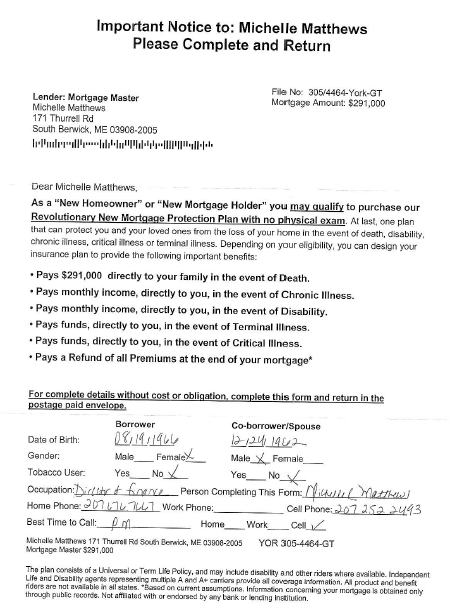 Important Notice to: Michelle Matthews
Please Complete and Return
Lender: Mortgage Master
Michelle Matthews
171 Thurrell Rd
South Berwick, ME 03908-2005
File No: 305/4464-York-GT
Mortgage Amount: $291,000
Dear Michelle Matthews,
As a "New Homeowner" or "New Mortgage Holder" you may qualify to purchase our
Revolutionary New Mortgage Protection Plan with no physical exam. At last, one plan
that can protect you and your loved ones from the loss of your home in the event of death, disability,
chronic illness, critical illness or terminal illness. Depending on your eligibility, you can design your
insurance plan to provide the following important benefits:
• Pays $291,000 directly to your family in the event of Death.
• Pays monthly income, directly to you, in the event of Chronic Illness.
• Pays monthly income, directly to you, in the event of Disability.
• Pays funds, directly to you, in the event of Terminal Illness.
• Pays funds, directly to you, in the event of Critical Illness.
• Pays a Refund of all Premiums at the end of your mortgage*
For complete details without cost or obligation, complete this form and return in the
postage paid envelope.
Borrower Co-borrower/Spouse
Date of Birth: 08/19/1966 12/24/1962
Gender: Male Female X Male X Female
Tobacco User: Yes No X Yes No X
Occupation: Person Completing This Form: Michelle Matthews
Home Phone: Work Phone: Cell Phone: 207 252 2493
Best Time to Call: PM Home Work Cell ✓
Michelle Matthews 171 Thurrell Rd South Berwick, ME 03908-2005 YOR 305-4464-GT
Mortgage Master $291,000
The plan consists of a Universal or Term Life Policy, and may include disability and other riders where available. Independent
Life and Disability agents representing multiple A and A+ carriers provide all coverage information. All product and benefit
riders are not available in all states. *Based on current assumptions. Information concerning your mortgage is obtained only
through public records. Not affiliated with or endorsed by any bank or lending institution.